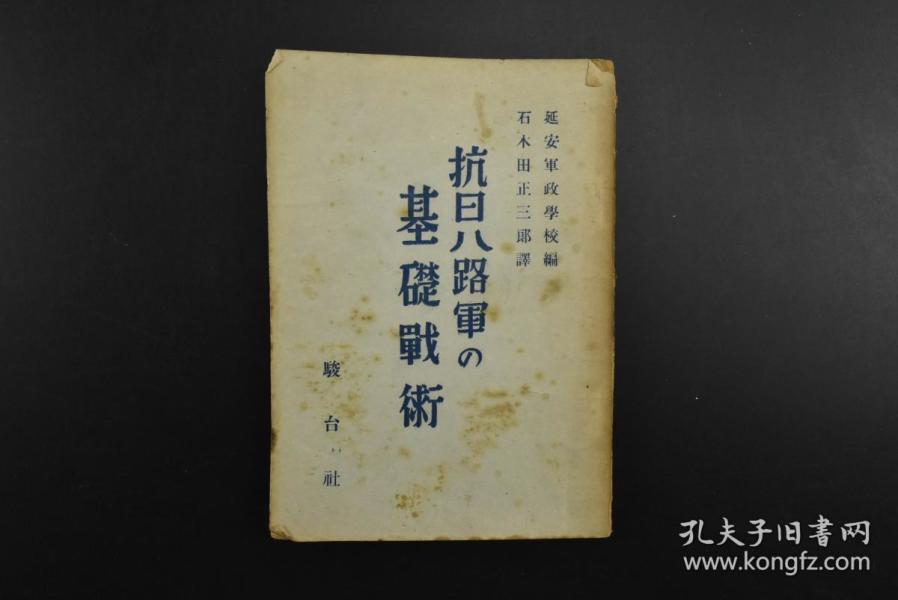 延安軍政學校編
石木田正三郎譯
抗日八路軍の
基礎戰術
駿台社
孔夫子旧书网
www.kongfz.com